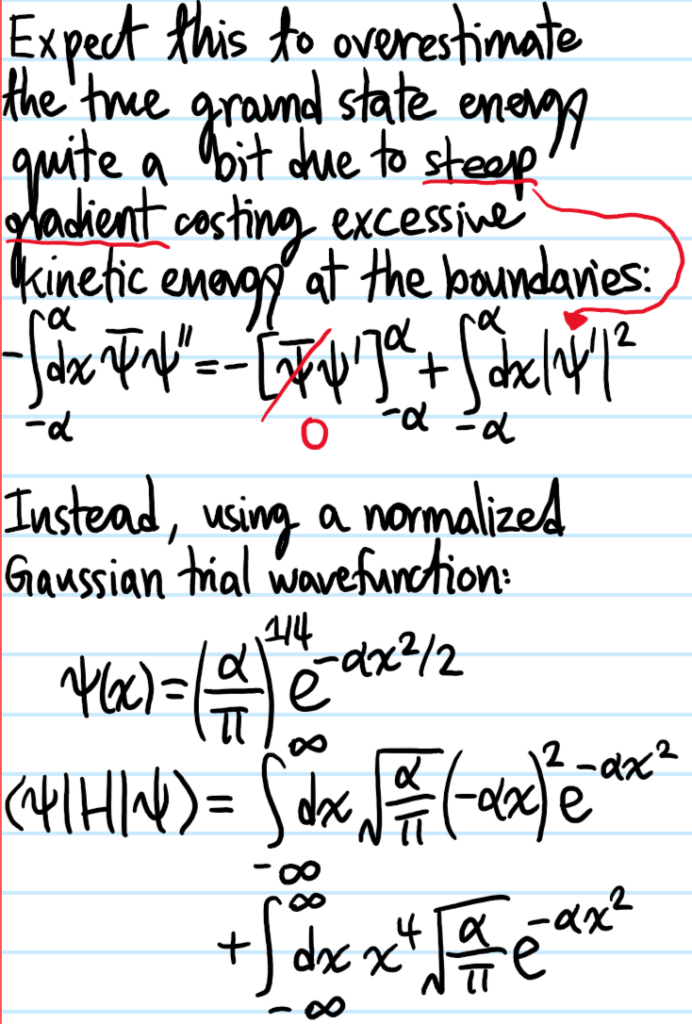 Expect this to overestimate
the true ground state energy
quite a bit due to steep
gradient costing excessive
kinetic energy at the boundaries:
-∫_{-α}^{α} dx ψ̄ψ'' = -[ψ̄ψ']_{-α}^{α} + ∫_{-α}^{α} dx|ψ'|²
0
Instead, using a normalized
Gaussian trial wavefunction:
ψ(x) = (α/π)^{1/4} e^{-αx²/2}
⟨ψ|H|ψ⟩ = ∫_{-∞}^{∞} dx √(α/π) (-αx)² e^{-αx²}
+ ∫_{-∞}^{∞} dx x⁴ √(α/π) e^{-αx²}